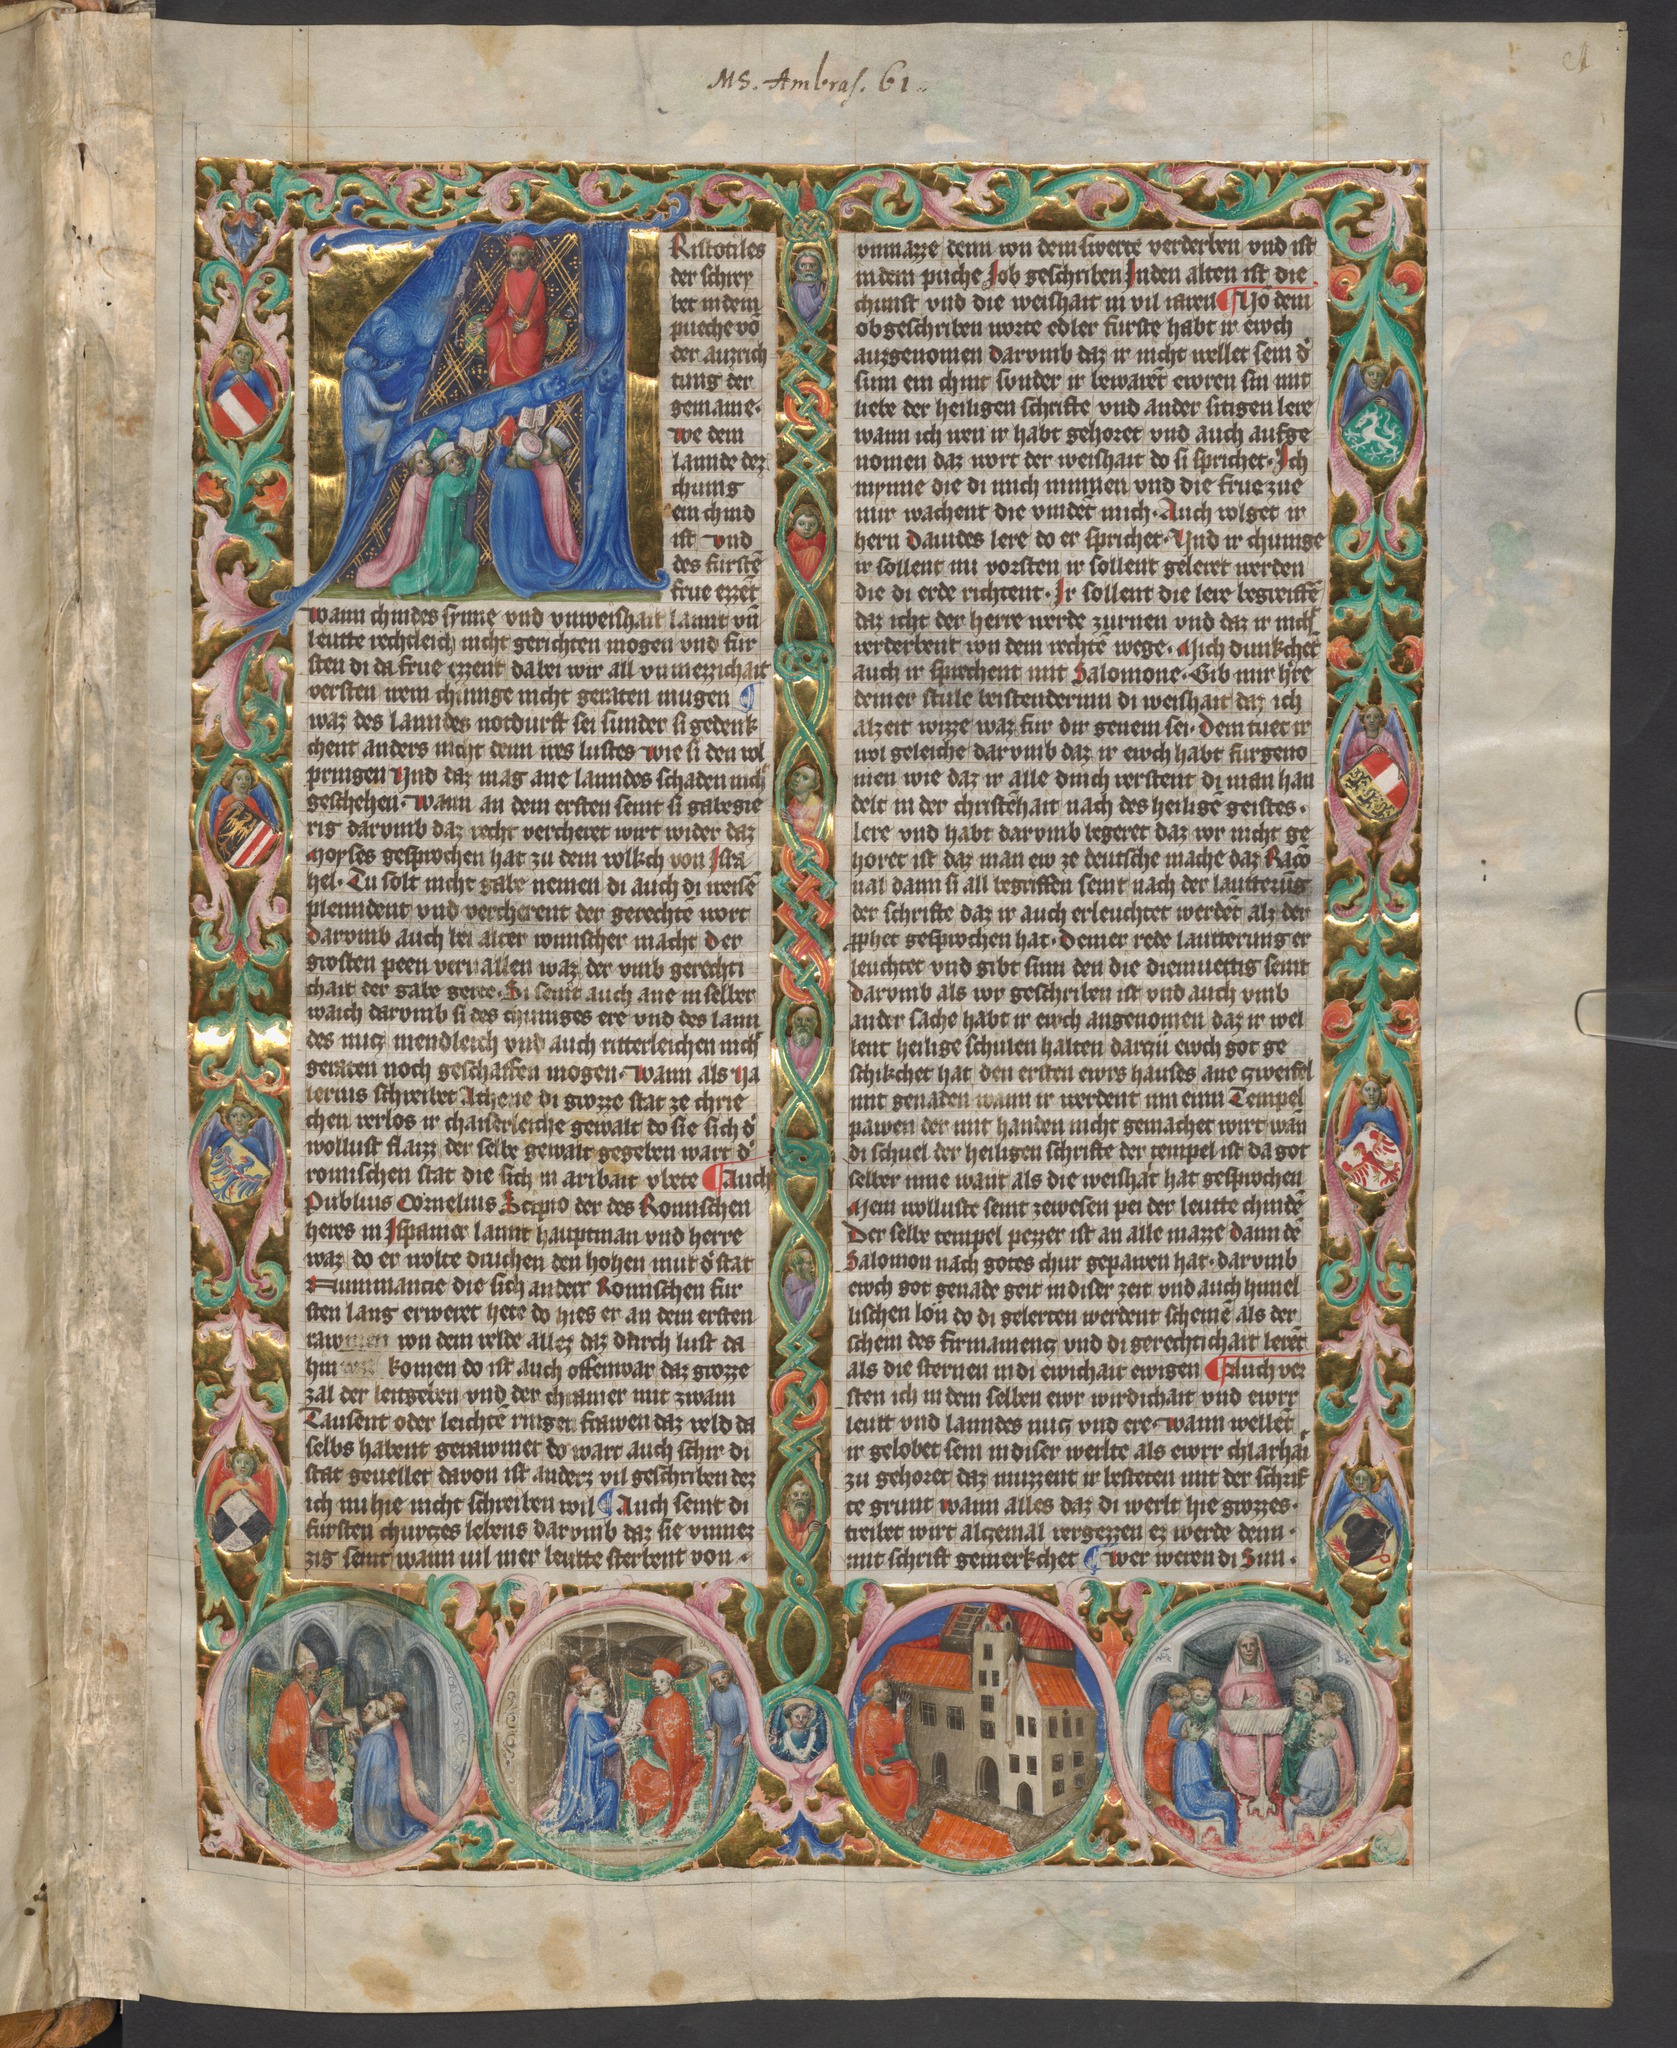 MS. Ambras. 61.
Aristotiles
der schrey
bet in dem
pueche vō
der auzrich
tung der
gemaine.
We dem
lannde dez
chunig
ein chind
ist vnd
des furstē
frue ezzēt
Wann chindes synne vnd vnweishait lannt vn̄
leutte rechtleich nicht gerichten mogen vnd fur
sten di da frue ezzent da bei wir all vnmezzichait
versten irem chunige nicht geraten mugen
waz des lanndes notdurft sei sunder si gedenk
chent anders nicht denn ires lustes wie si den vol
pringen Vnd daz mag ane lanndes schaden nich
geschehen. Wann an dem ersten seint si gabegie
rig darvmb daz recht vercheret wirt wider daz
Moyses gesprochen hat zu dem volkch von Isra
hel. Du solt nicht gabe nemen di auch di weisē
plenndent vnd vercherent der gerechtē wort
darvmb auch bei alter romischer macht der
grosten peen vervallen waz der vmb gerechti
chait der gabe gerte. Si seint auch ane in selber
waich darvmb si des chuniges ere vnd des lann
des nutz mendleich vnd auch ritterleichen nich
geraten noch geschaffen mogen. Wann als Va
lerius schreibet Athene di grozze stat ze chrie
chen verlos ir chaiserleiche gewalt do sie sich d
wollust flaizz der selbe gewalt gegeben wart d
romischen stat die sich in aribait vbete Auch
Publius Cornelius Scipio der des Romischen
heres in Ispanier lannt hauptman vnd herre
waz do er wolte druchen den hohen mut d stat
Nummancie die sich anderr Romischen fur
sten lang erweret hete do hies er an dem ersten
rawmen von dem velde allez daz durch lust da
hin komen do ist auch offenwar daz grozze
zal der leitgeben vnd der chramer mit zwain
Tausent oder leichtē ringer frawen daz veld da
selbs habent gerawmet do wart auch schir di
stat geuellet davon ist anderz vil geschriben dez
ich nu hie nicht schreiben wil Auch seint di
fursten churtzes lebens darvmb daz sie vnmez
zig seint wann vil mer leutte sterbent von
vnmazze denn von dem swerte verderben vnd ist
in dem puche Job geschriben In den alten ist die
chunst vnd die weishait in vil iaren Vō dem
obgeschriben worte edler furste habt ir ewch
auzgenomen darvmb daz ir nicht wellet sein d
sinn ein chint sunder ir bewarēt ewren sin mit
liebe der heiligen schrifte vnd ander sitigen lere
wann ich wen ir habt gehoret vnd auch aufge
nomen daz wort der weishait do si sprichet. Ich
mynne die di mich minnen vnd die frue zue
mir wachent die vindēt mich. Auch volget ir
hern Dauides lere do er sprichet. Vnd ir chunige
ir sollent nu vorsten ir sollent geleret werden
die di erde richtent. Ir sollent die lere begreiffē
daz icht der herre werde zurnen vnd daz ir nich
verderbent von dem rechtē wege. Mich dunkchet
auch ir sprechent mit Salomone. Gib mir hre
deiner stule beistenderinn di weishait daz ich
alzeit wizze waz fur dir genem sei. Dem tuet ir
wol geleiche darvmb daz ir ewch habt furgeno
men wie daz ir alle dinch verstent di man han
delt in der christēhait nach des heiligē geistes.
lere vnd habt darvmb begeret daz vor nicht ge
horet ist daz man ew ze deutsche mache daz Racō
nal dann si all begriffen seint nach der lautterūg
der schrifte daz ir auch erleuchtet werdēt alz der
pphet gesprochen hat. Deiner rede lautterung er
leuchtet vnd gibt sinn den die diemuettig seint
darvmb als vor geschriben ist vnd auch vmb
ander sache habt ir ewch angenomen daz ir wel
lent heilige schulen halten dartzu ewch got ge
schikchet hat den ersten ewrs hauses ane zweifel
mit genaden wann ir werdent im einn Tempel
pawen der mit handen nicht gemachet wirt wan̄
di schuel der heiligen schrifte der tempel ist da got
selber inne want als die weishāt hat gesprochen
Mein wolluste seint zewesen pei der leutte chindē
Der selbe tempel pezzer ist an alle mazze dann dē
Salomon nach gotes chur gepawen hat. darvmb
ewch got genade geit in diser zeit vnd auch himel
lischen lon do di gelerten werdent scheinē als der
schein des firmamentz vnd di gerechtichait lerēt
als die sternen in di ewichait ewigen Auch ver
sten ich in dem selben ewr wirdichait vnd ewrr
leutt vnd lanndes nutz vnd ere. Wann wellēt
ir gelobet sein in diser werlte als ewrr chlarhai
zu gehoret daz muzzent ir besteten mit der schrif
te grunt wann alles daz di werlt hie grozzes.
treibet wirt alczemal vergezzen ez werde denn.
mit schrift gemerkchet Wer weren di Sun.